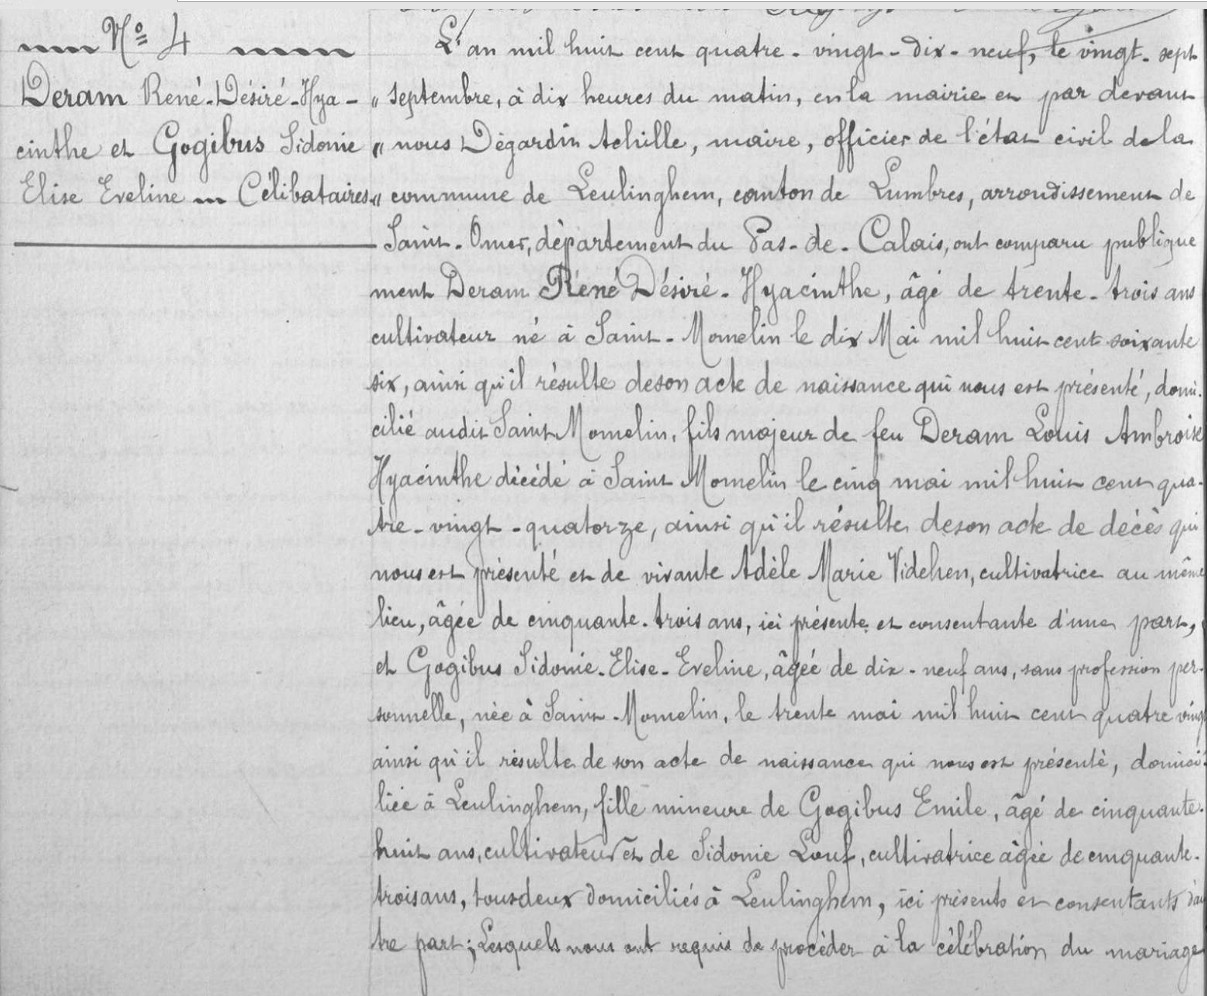 N° 4
Deram René-Désiré-Hya-
cinthe et Gogibus Sidonie
Elise Eveline Célibataires
L'an mil huit cent quatre-vingt-dix-neuf, le vingt-sept
septembre, à dix heures du matin, en la mairie et par devant
nous Dégardin Achille, maire, officier de l'état civil de la
commune de Leulinghem, canton de Lumbres, arrondissement de
Saint-Omer, département du Pas-de-Calais, ont comparu publique
ment Deram Réné Désiré-Hyacinthe, âgé de trente-trois ans
cultivateur né à Saint-Momelin le dix Mai mil huit cent soixante
six, ainsi qu'il résulte de son acte de naissance qui nous est présenté, domi-
cilié audit Saint Momelin, fils majeur de feu Deram Louis Ambroise
Hyacinthe décédé à Saint Momelin le cinq mai mil huit cent qua-
tre-vingt-quatorze, ainsi qu'il résulte de son acte de décès qui
nous est présenté et de vivante Adèle Marie Videhen, cultivatrice au même
lieu, âgée de cinquante-trois ans, ici présente et consentante d'une part,
et Gogibus Sidonie-Elise-Eveline, âgée de dix-neuf ans, sans profession per-
sonnelle, née à Saint-Momelin, le trente mai mil huit cent quatre vingt
ainsi qu'il résulte de son acte de naissance qui nous est présenté, domici-
liée à Leulinghem, fille mineure de Gogibus Emile, âgé de cinquante-
huit ans, cultivateur et de Sidonie Louf, cultivatrice âgée de cinquante-
trois ans, tous deux domiciliés à Leulinghem, ici présents et consentants d'au
tre part; Lesquels nous ont requis de procéder à la célébration du mariage